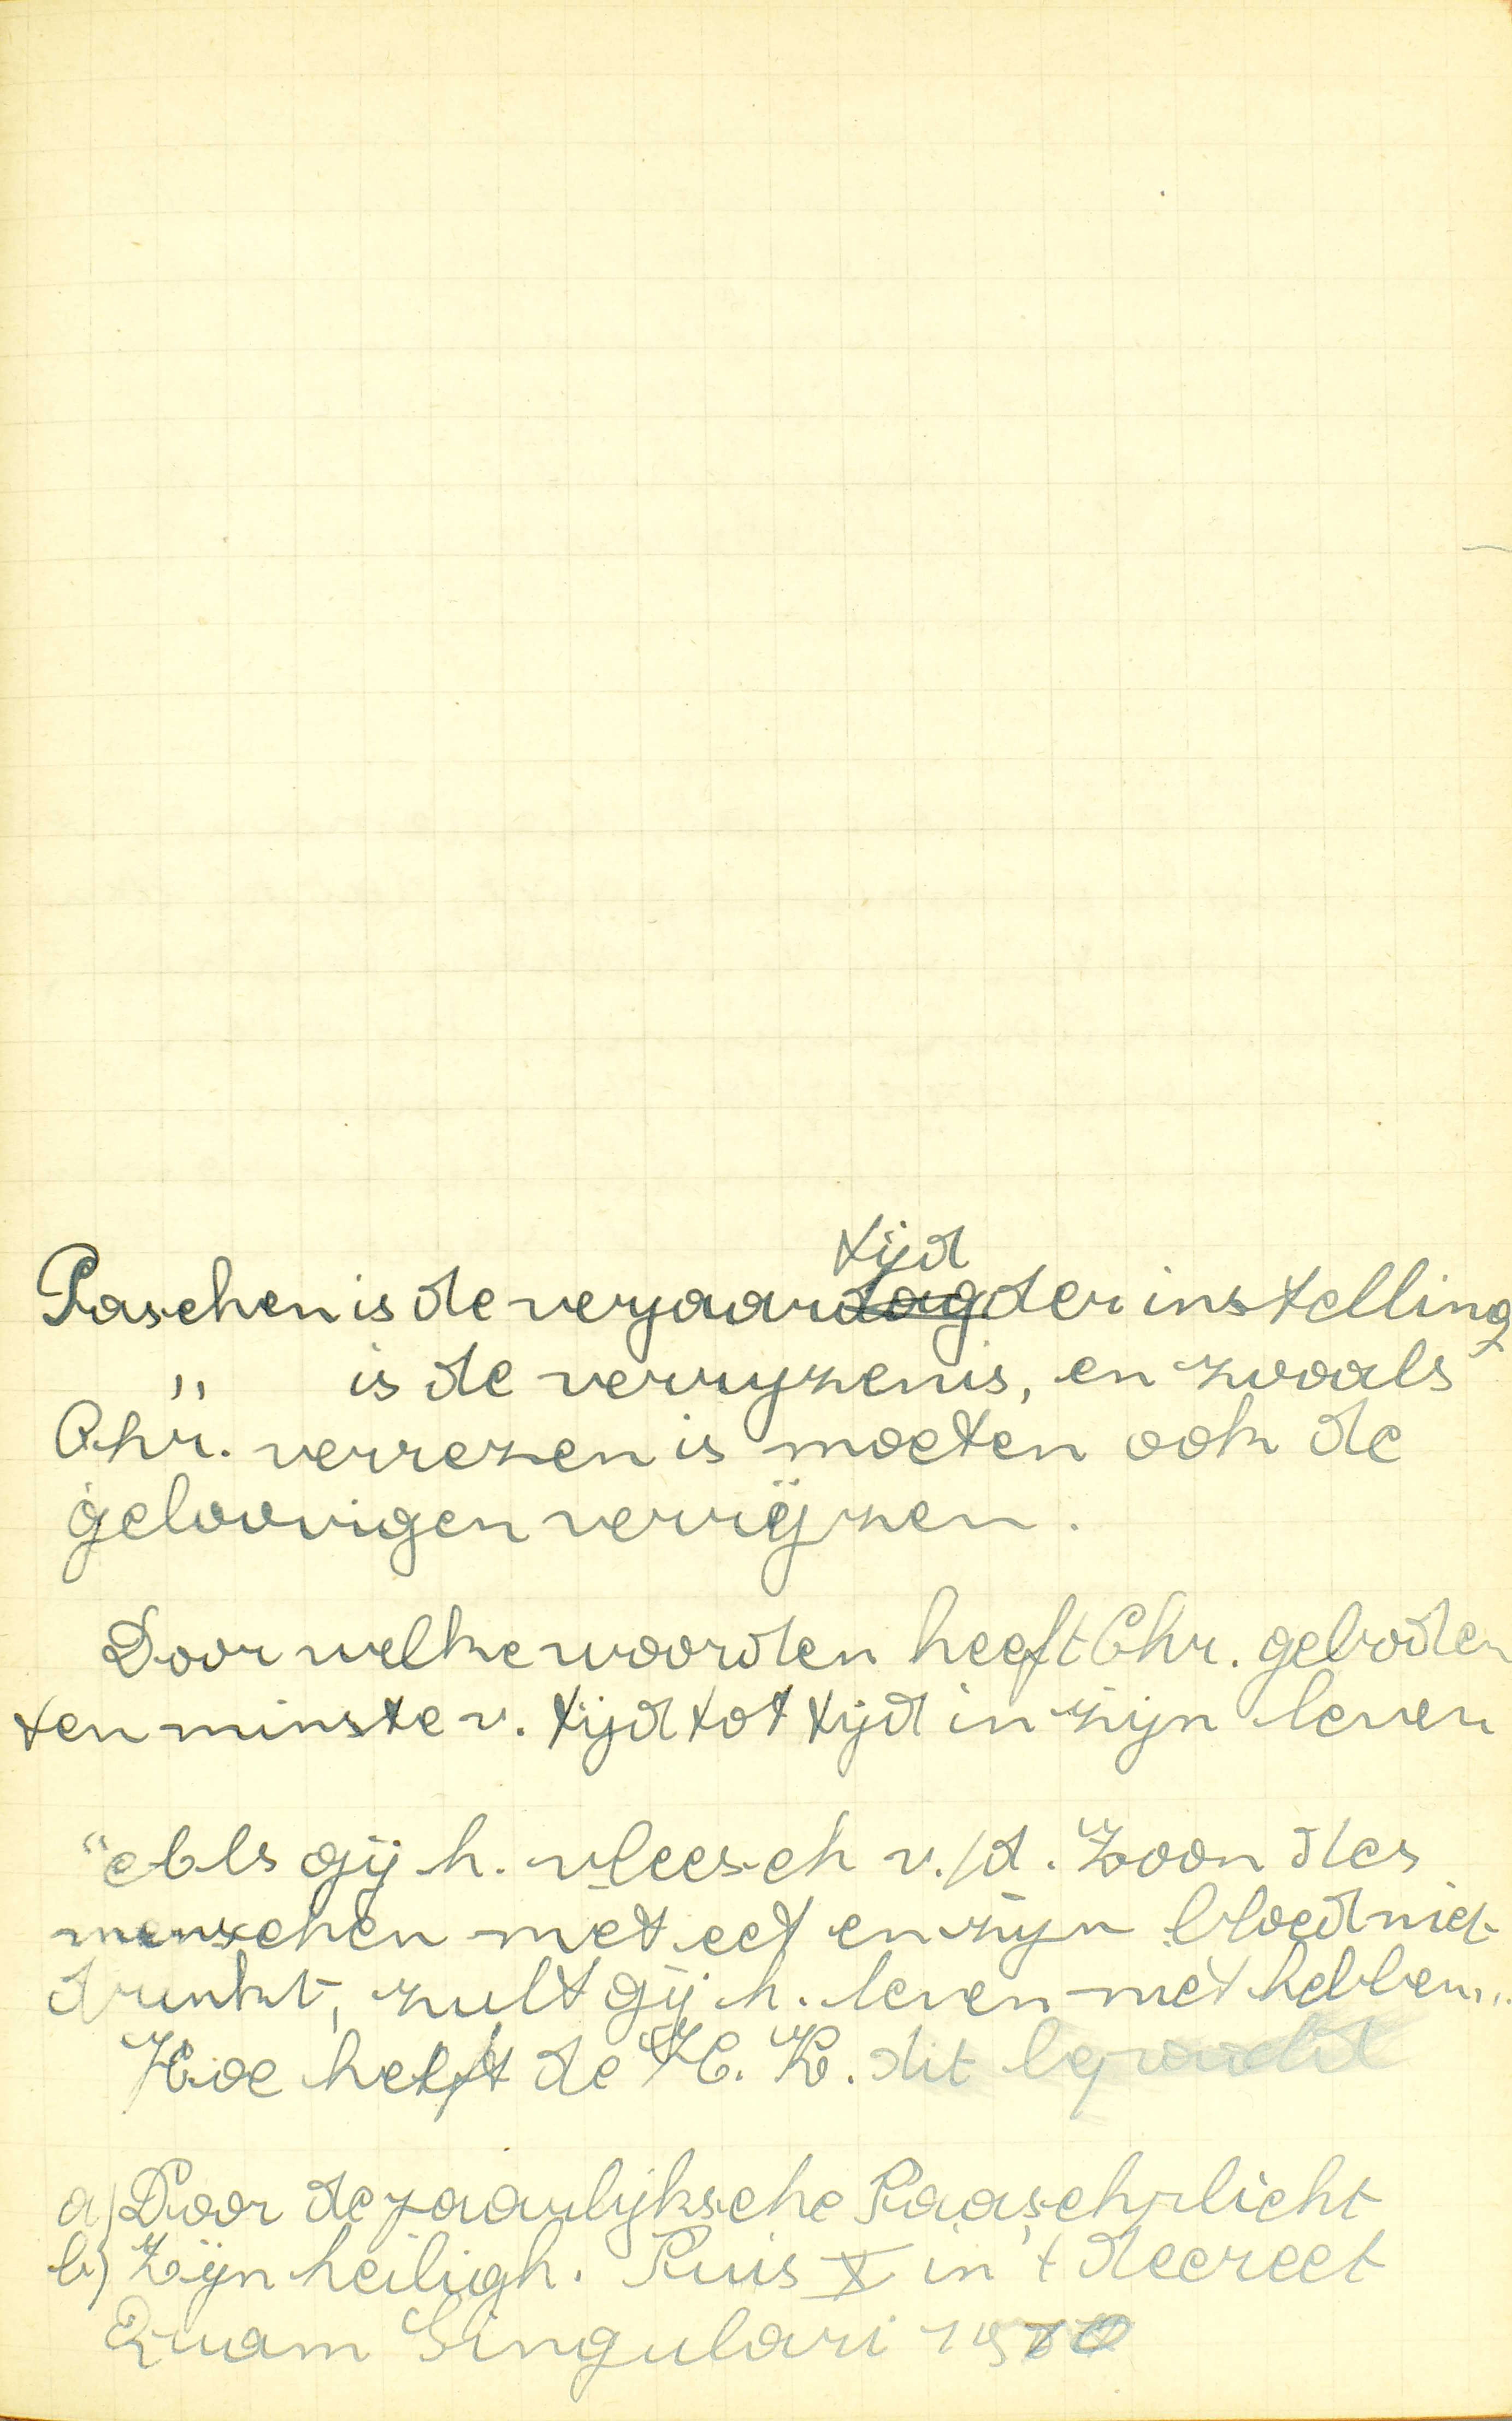 tijd
Paschen is de verjaardag der instelling
" is de verryzenis, en zooals
Chr. verrezen is moeten ook de
geloovigen verrijzen.
Door welke woorden heeft Chr. geboden
ten minste v. tijd tot tijd in zijn leven
"Als gij h. vleesch v./d. Zoon des
menschen niet eet en zijn bloed niet
drinkt, zult gij h. leven niet hebben,,.
Hoe heeft de H. K. dit
a) Door de jaarlijksche Paaschplicht
b) Zijn heiligh. Pius X in 't decreet
Quam Singulari 1910